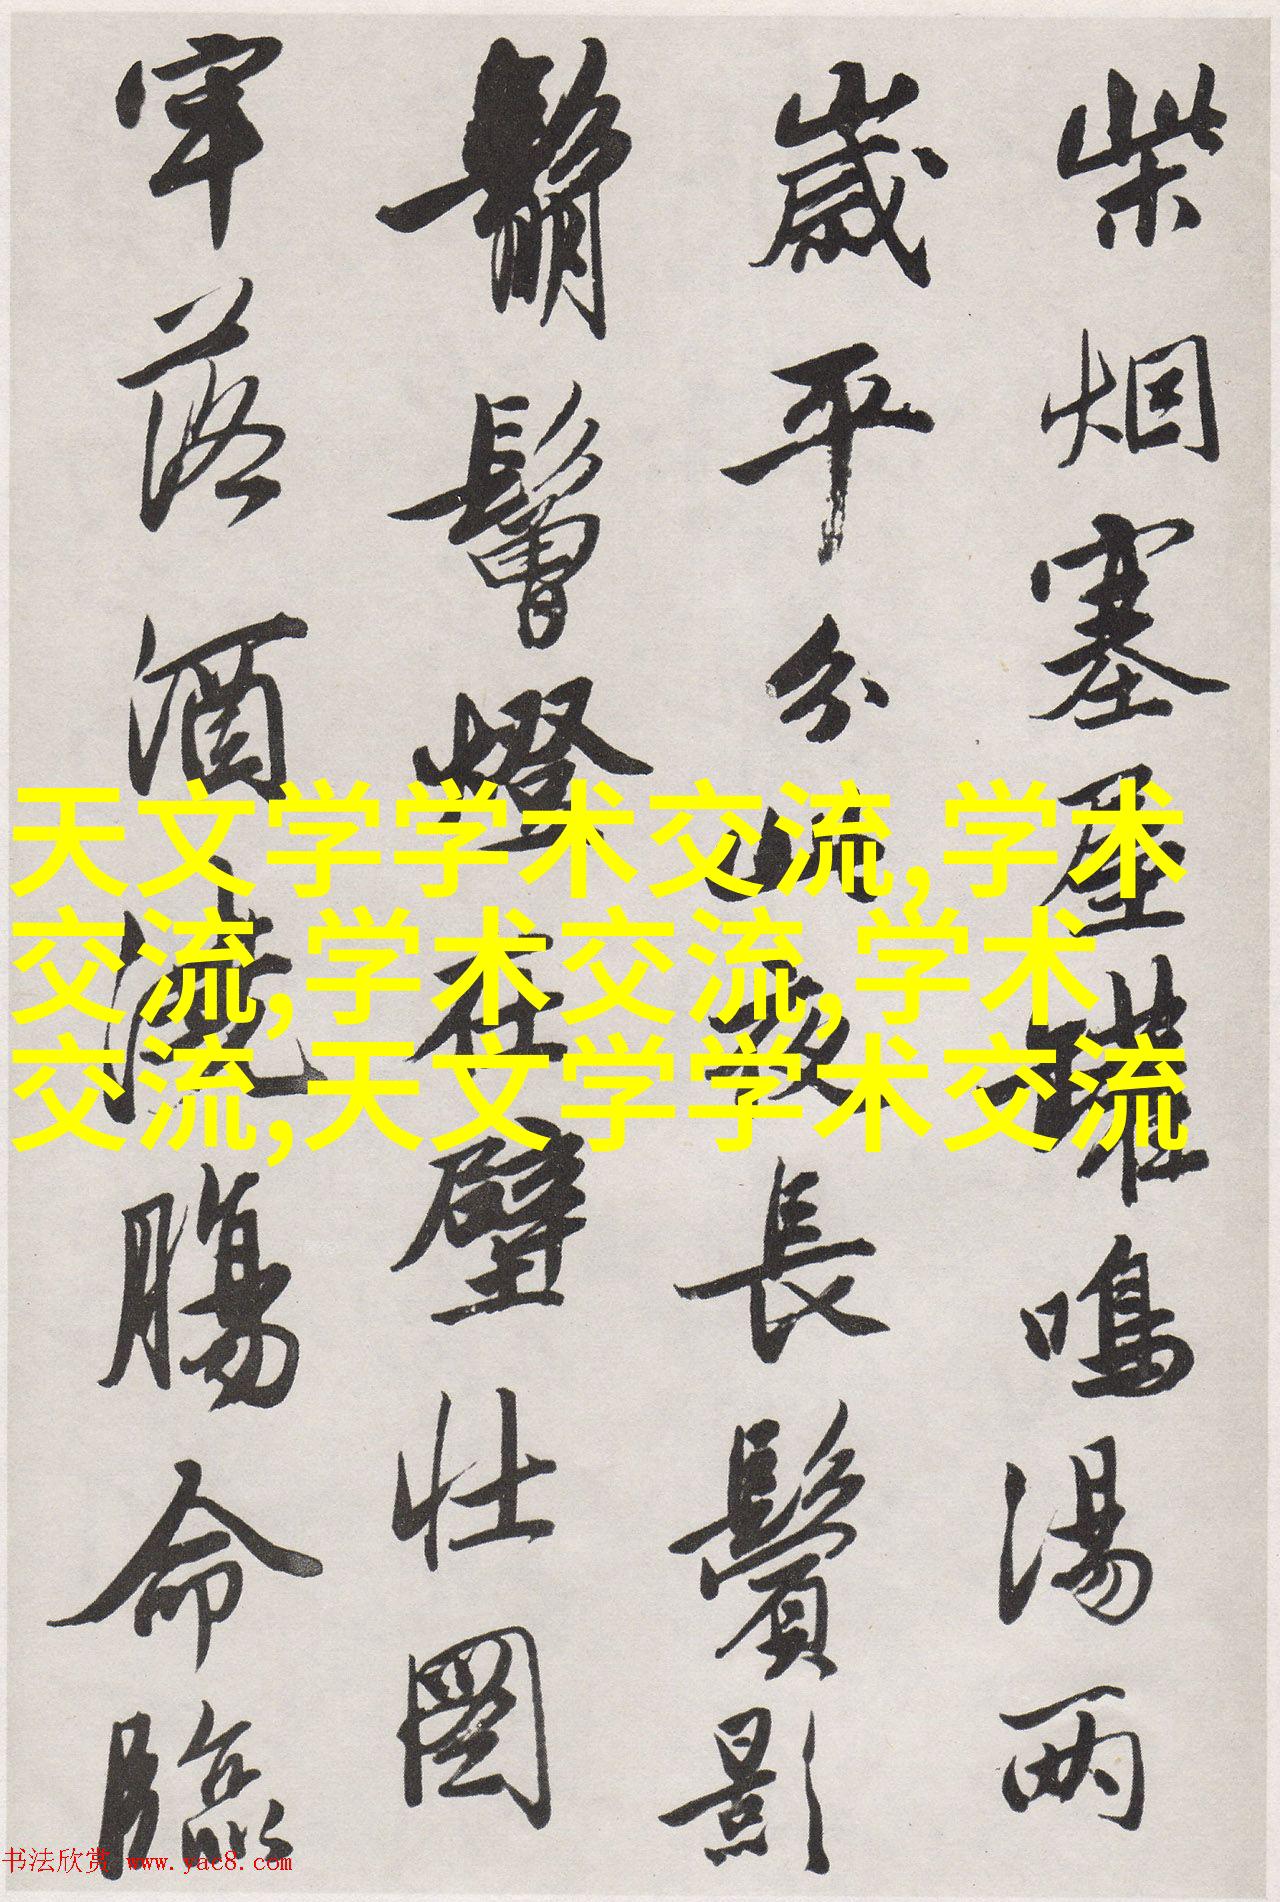 柴烟塞屋罐鸣汤两
歲平分此夜長鬢影
鬅鬙燈在壁壮圖
牢落酒澆腸命臨
天文学学术交流,学术
交流,学术交流,学术
交流,天文学学术交流
书法欣赏 www.yac8.com